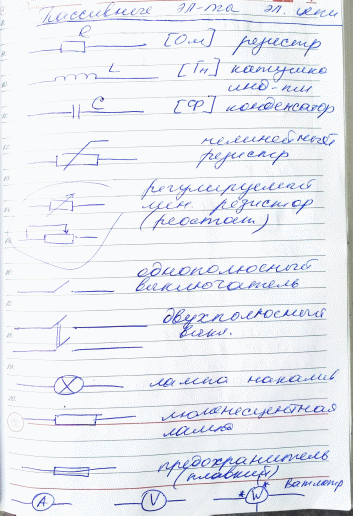 Пассивные эл-та эл. цепи
R [Ом] резистр
L [Гн] катушка
инд-ти
C [Ф] конденсатор
нелинейный
резистр
регулируемый
лин резистор
(реостат)
однополюсный
выключатель
двухполюсный
выкл.
лампа накалив
люменесцентная
лампа
предохранитель
(плавкий)
A V * W * Ватметр